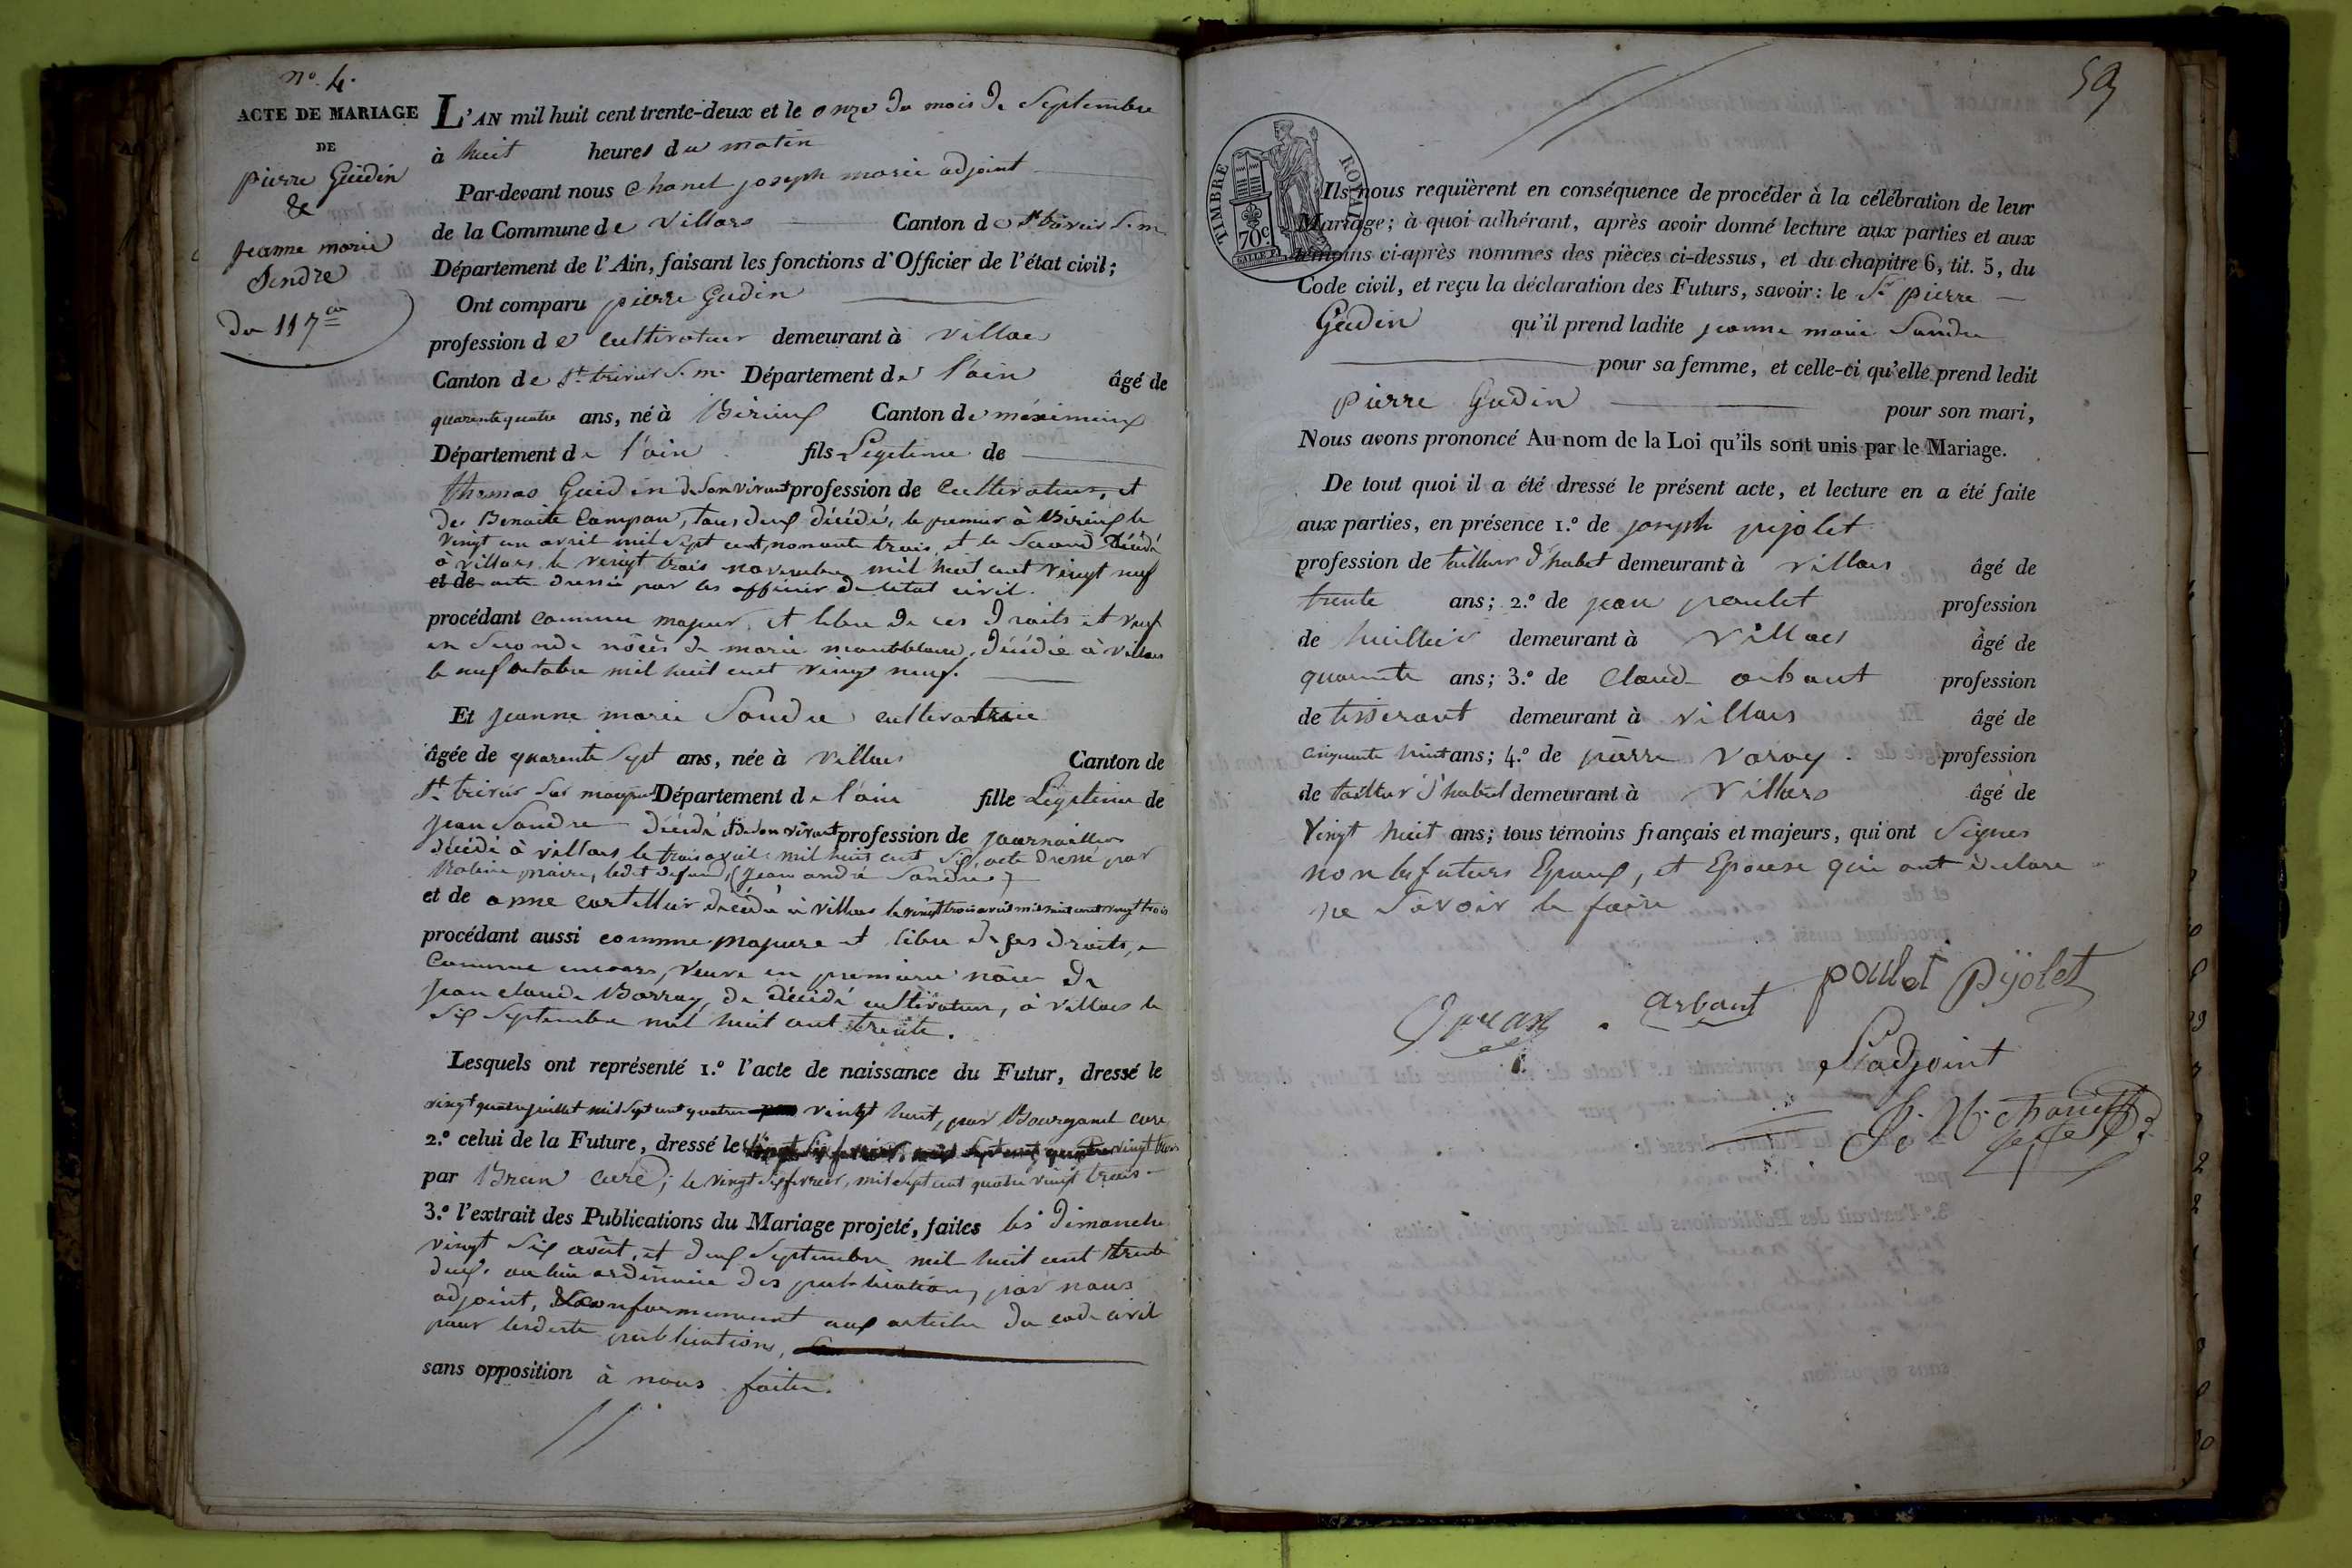 n.° 4.
ACTE DE MARIAGE
DE
pierre Guidin
&
jeanne marie
Sendre
du 11 7bre
L'AN mil huit cent trente-deux et le onze du mois de Septembre
à huit heures du matin
Par-devant nous Chanel joseph marie adjoint
de la Commune de Villars Canton de St trivier S. m.
Département de l'Ain, faisant les fonctions d'Officier de l'état civil;
Ont comparu pierre Gudin
profession de cultivateur demeurant à Villars
Canton de St. trivier S. m. Département de l'ain âgé de
quarente quatre ans, né à Birieux Canton de méximieux
Département de l'ain fils Legetime de
thomas Guidin de Son vivant profession de Cultivateur, et
de Benoite Campan, tous deux décédé, le premier à Birieux le
vingt un avril mil Sept cent nonante trois, et la Second décédé
à villars le vingt trois novembre mil huit cent vingt neuf
et de acte dressé par les officier de letat civil.
procédant comme majeur, et libre de ces Droits et veuf
en Seconde nôces de marie montblanc, décédée à villars
le neuf octobre mil huit cent vingt neuf.
Et jeanne marie Sandre cultivatrice
âgée de quarente Sept ans, née à Villars Canton de
St. trivier Sur Département de l'ain fille Légetime de
jean Sandre décédé et de Son vivant profession de journaillier
décédé à villars le trois avril mil huit cent Six, acte dressé par
maire, ledit defund, (jean andré Sandre)
et de anne décédé à villars le vingt trois avril mil huit cent vingt trois
procédant aussi comme majeure et libre de ses droits, e
Comme encore, veuve en premiere nôce de
jean claude Borray, de décédé cultivateur, à villars le
Six Septembre mil huit cent trente.
Lesquels ont représenté 1.° l'acte de naissance du Futur, dressé le
vingt quatre juillet mil Sept cent quatre vingt huit, par Bourganel curé
2.° celui de la Future, dressé le vingt Six fevrier, mil Sept cent quatre vingt trois
par Brun Curé, le vingt Six fevrier, mil Sept cent quatre vingt trois
3.° l'extrait des Publications du Mariage projeté, faites les dimanche
vingt Six août, et deux Septembre mil huit cent trente
deux, au lieu ordinaire des publications, par nous
adjoint, conformement aux articles du code civil
pour lesdite publications,
sans opposition à nous faite.
59
TIMBRE ROYAL
70c.
Ils nous requièrent en conséquence de procéder à la célébration de leur
Mariage; à quoi adhérant, après avoir donné lecture aux parties et aux
témoins ci-après nommés des pièces ci-dessus, et du chapitre 6, tit. 5, du
Code civil, et reçu la déclaration des Futurs, savoir: le Sr. pierre
Gudin qu'il prend ladite jeanne marie Sandre
pour sa femme, et celle-ci qu'elle prend ledit
pierre Gudin pour son mari,
Nous avons prononcé Au nom de la Loi qu'ils sont unis par le Mariage.
De tout quoi il a été dressé le présent acte, et lecture en a été faite
aux parties, en présence 1.° de joseph pijolet
profession de tailleur d'habit demeurant à villars âgé de
trente ans; 2.° de jean poulet profession
de huillier demeurant à Villars âgé de
quarente ans; 3.° de Claude arbant profession
de tisserant demeurant à villars âgé de
cinquante huit ans; 4.° de pierre Varay profession
de tailleur d'habit demeurant à Villars âgé de
Vingt huit ans; tous témoins français et majeurs, qui ont Signés
non les futurs Epoux, et Epouse qui ont déclare
ne Savoir le faire
arbant poulet Pijolet
L'adjoint
J. M. Chanel